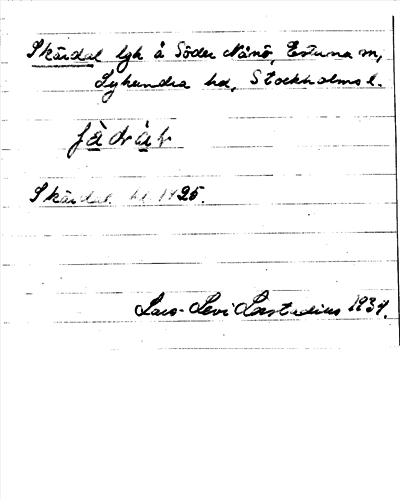 Skärdal lgh å Söder Nånö, Estuna sn,
Lyhundra hd, Stockholms l.
Skärdal 1925.
Lars-Levi Læstadius 1934.